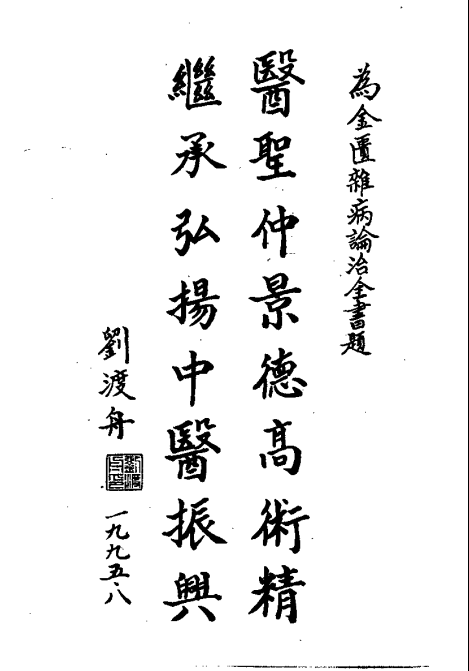 為金匱雜病論治全書題
醫聖仲景德高術精
繼承弘揚中醫振興
劉渡舟
一九九五·八